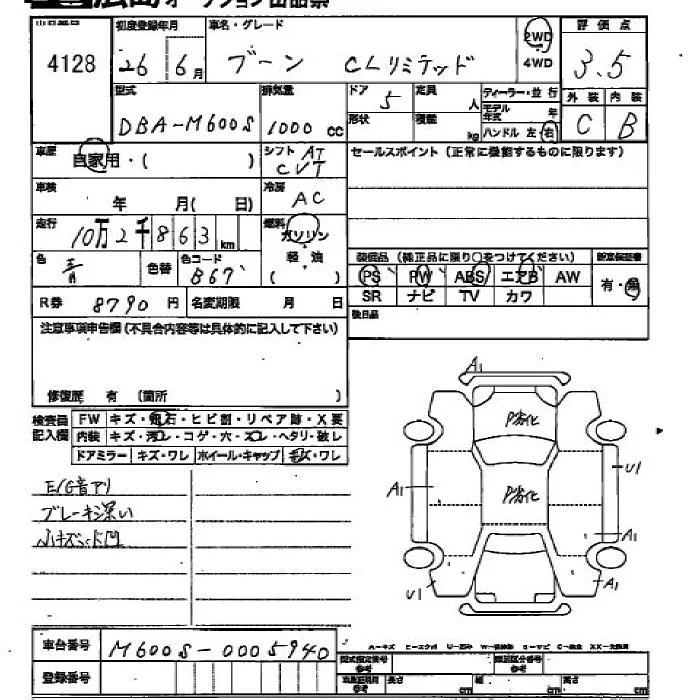 広島オークション出品票
4128
初度登録年月
26 6月
車名・グレード
ブーン CLリミテッド
2WD
4WD
評価点
3.5
外装 内装
C B
型式
DBA-M600S
排気量
1000 CC
ドア 5
形状
定員 人
積載 kg
ディーラー・並行
モデル年式 年
ハンドル 左・右
車歴
自家用・( )
シフト AT
CVT
セールスポイント(正常に機能するものに限ります)
車検
年 月( 日)
冷房
AC
走行
10万2千863km
燃料
ガソリン
軽・油
( )
色
青
色替
色コード
B67
装備品(純正品に限り○をつけてください)
新車保証書
PS PW ABS エアB AW
有・無
SR ナビ TV カワ
後日品
R券 8790円
名変期限 月 日
注意事項申告欄(不具合内容等は具体的に記入して下さい)
修復歴 有(箇所 )
検査員記入欄
FW キズ・飛石・ヒビ割・リペア跡・X要
内装 キズ・汚レ・コゲ・穴・スレ・ヘタリ・破レ
ドアミラー キズ・ワレ ホイール・キャップ キズ・ワレ
E/G音アリ
ブレーキ深い
小キズ、凹
A1
P劣化
U1
A1
P劣化
A1
U1
A1
車台番号
M600S-0005940
登録番号
型式指定番号
参考
類別区分番号
参考
長さ cm
幅 cm
高さ cm